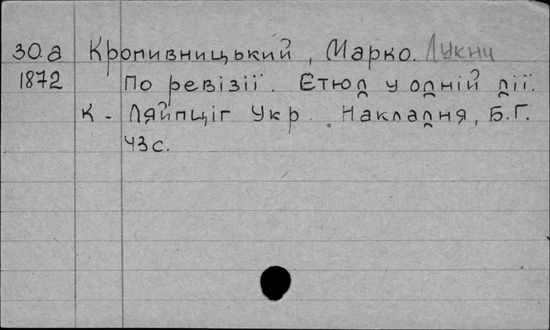 30.а Кропивницький, Марко. Лукич
1872 По ревізії. Етюд у одній дії.
К - Ляйпціг Укр. Накладня, Б.Г.
43с.